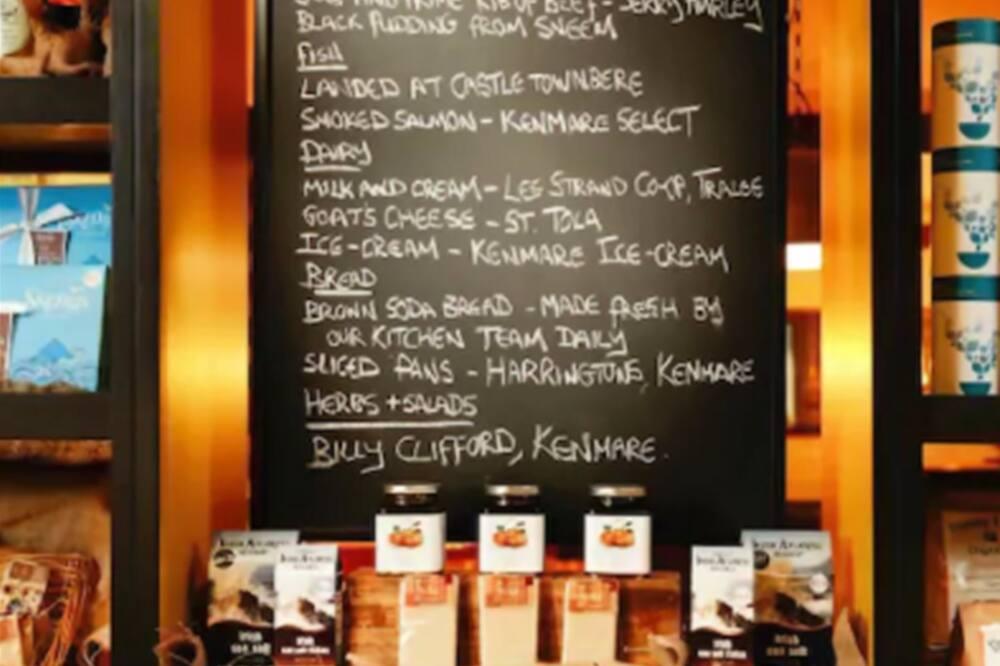 AND PRIME RIB OF BEEF - JERRY HARLEY
BLACK PUDDING FROM SNEEM
FISH
LANDED AT CASTLETOWNBERE
SMOKED SALMON - KENMARE SELECT
DAIRY
MILK AND CREAM - LEE STRAND CO-OP, TRALEE
GOAT'S CHEESE - ST. TOLA
ICE-CREAM - KENMARE ICE-CREAM
BREAD
BROWN SODA BREAD - MADE FRESH BY
OUR KITCHEN TEAM DAILY
SLICED PANS - HARRINGTONS, KENMARE
HERBS + SALADS
BILLY CLIFFORD, KENMARE.
IRISH ATLANTIC
IRISH
SEA SALT
IRISH ATLANTIC
IRISH
SEA SALT